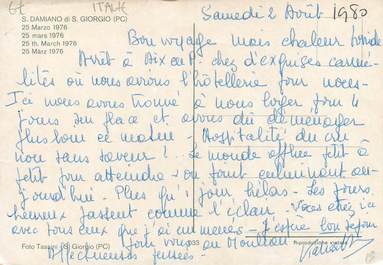 6€ ITALIE
S. DAMIANO di S. GIORGIO (PC)
25 Marzo 1976
25 mars 1976
25 th. March 1976
25 März 1976
Samedi 2 Août 1980
Bon voyage mais chaleur torride
Arrêt à Aix ou P. chez d'ex
lités où nous avions l'hôtellerie pour nous-
Ici nous avons trouvé à nous loger pour 4
jours sur place et avons dû déménager
plus loin ce matin - Hospitalité du cru
non sans saveur! - Le monde afflue petit à
petit pour atteindre un jour culminant au-
jourd'hui - Plus qu'1 jour hélas - Les jours
heureux passent comme l'éclair - Vous êtes ici
avec tous ceux que j'ai emmenés - J'espère bon séjour
pour vous au Moullon
Affectueuses pensées -
Foto Tassini (S. Giorgio) (PC)
Riproduzione vietata